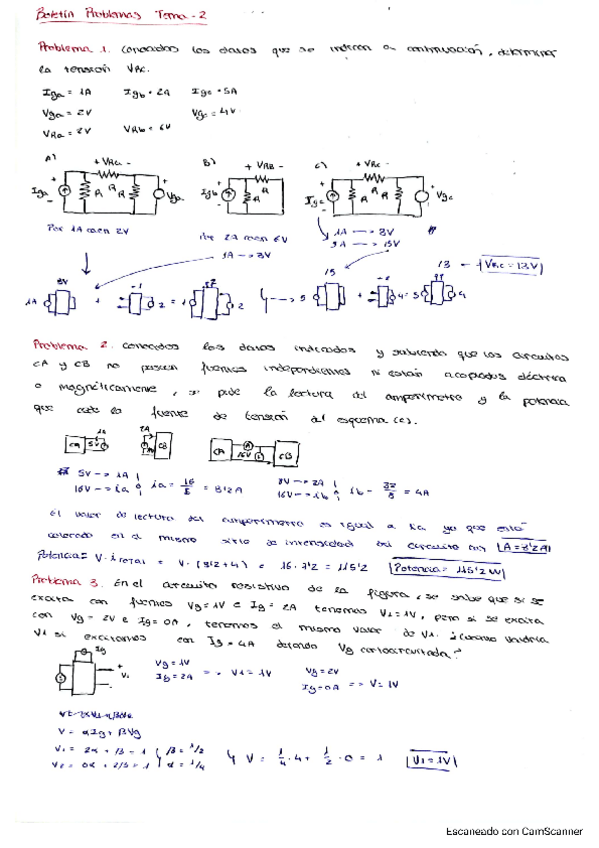 Boletín Problemas Tema - 2
Problema 1. Conocidos los datos que se indican a continuación, determinar
la tensión VRc.
Iga = 1A Igb = 2A Igc = 5A
Vga = 2V Vgc = 4V
VRa = 2V VRb = 6V
A) + VRa - B) + VRB - C) + VRc -
Iga R R R Vga Igb R R Igc R R R Vgc
Por 1A caen 2V
2A caen 6V
1A --> 3V
1A --> 3V
5A --> 15V
3V 15 13 VRc = 13V
1A + 2 = 1 2 5 + 4 = 5 4
Problema 2. Conocidos los datos indicados y sabiendo que los circuitos
CA y CB no poseen fuentes independientes ni están acoplados eléctrica
o magnéticamente, se pide la lectura del amperímetro y la potencia
que cede la fuente de tensión del esquema (c).
CA 5V 1A 2A CB CA 16V CB
5V --> 1A
16V --> ia ia = 16/5 = 3'2A
8V --> 2A
16V --> ib ib = 32/8 = 4A
El valor de lectura del amperímetro es igual a ia ya que está
colocado en el mismo sitio de intensidad del circuito A = 3'2A
Potencia = V · iTOTAL = V · (3'2+4) = 16 · 7'2 = 115'2 Potencia = 115'2 W
Problema 3. En el circuito resistivo de la figura, se sabe que si se
excita con fuentes Vg = 1V e Ig = 2A tenemos V1 = 1V, pero si se excita
con Vg = 2V e Ig = 0A, tenemos el mismo valor de V1. ¿Cuánto valdría
V1 si excitamos con Ig = 4A dejando Vg cortocircuitada?
Ig + V1 -
Vg = 1V
Ig = 2A => V1 = 1V
Vg = 2V
Ig = 0A => V = 1V
V = αIg + βVg
V1 = 2α + β = 1 β = 1/2
V2 = 0α + 2β = 1 α = 1/4
V = 1/4 · 4 + 1/2 · 0 = 1 V1 = 1V
Escaneado con CamScanner